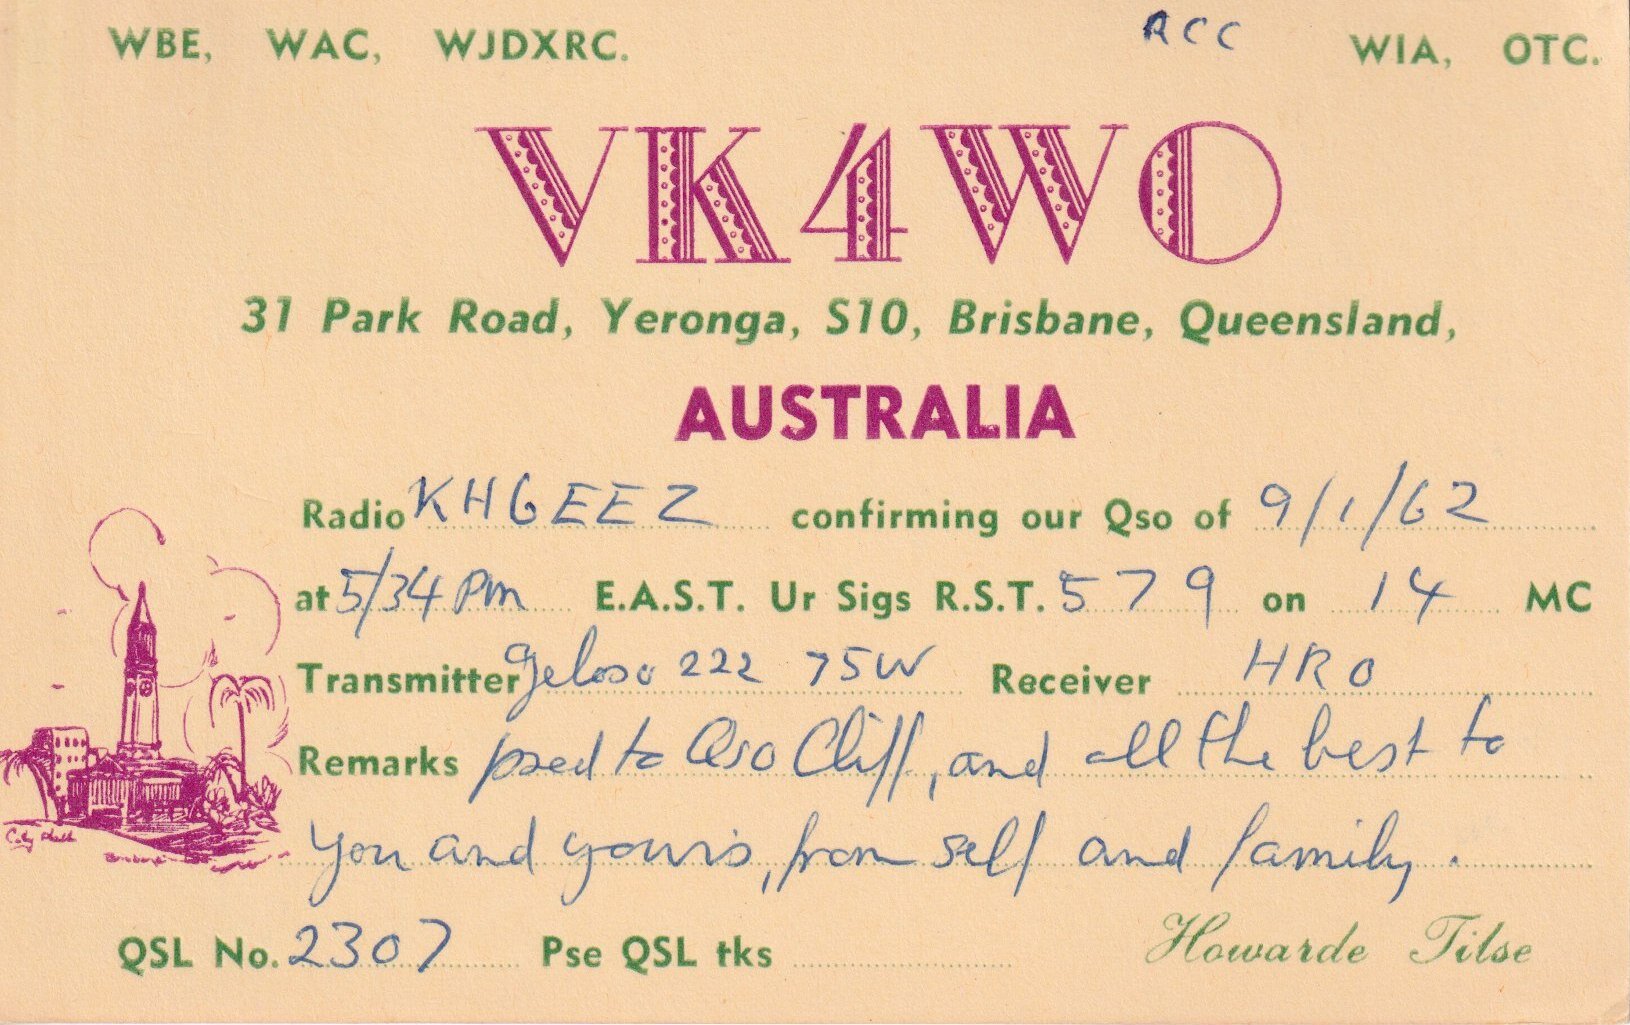 WBE, WAC, WJDXRC. RCC WIA, OTC.
VK4WO
31 Park Road, Yeronga, S10, Brisbane, Queensland,
AUSTRALIA
Radio KH6EEZ confirming our Qso of 9/1/62
at 5/34 Pm E.A.S.T. Ur Sigs R.S.T. 579 on 14 MC
Transmitter Geloso 222 75W Receiver HRO
Remarks psed to Qso Cliff, and all the best to
you and yours, from self and family.
City Hall
QSL No. 2307 Pse QSL tks
Howarde Tilse